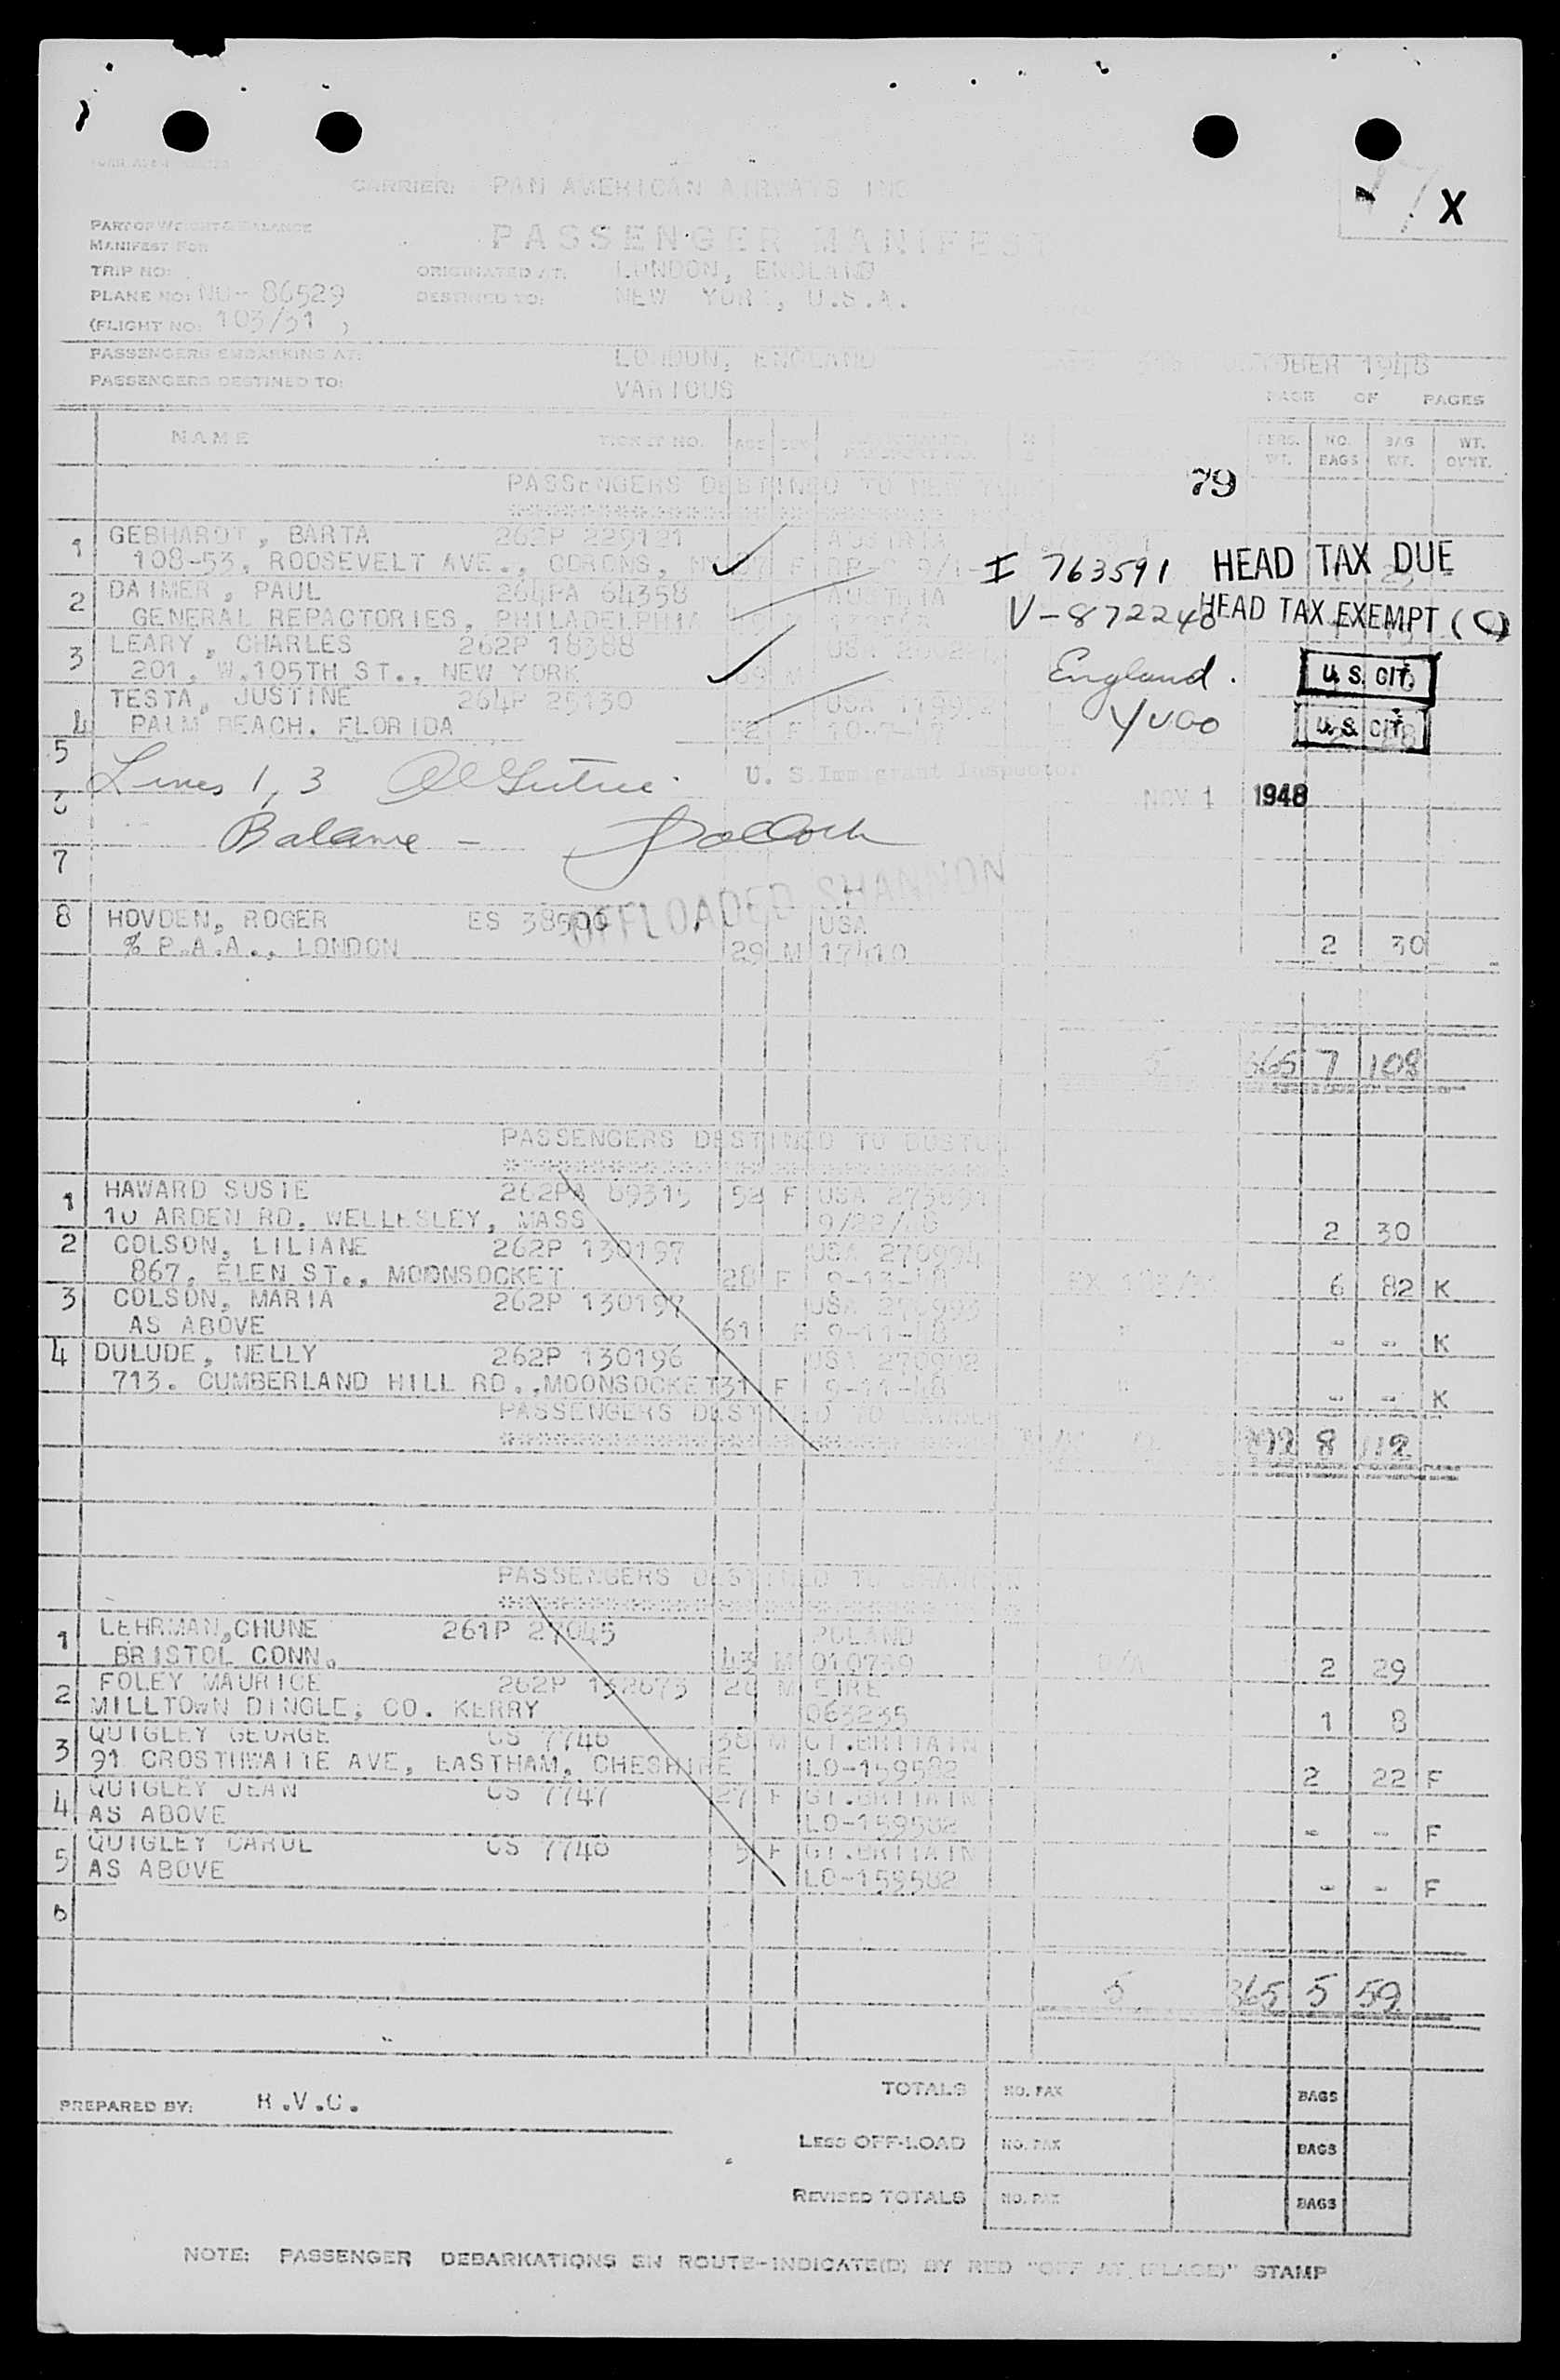 CARRIER: PAN AMERICAN AIRWAYS INC
17 X
PART OF WEIGHT & BALANCE
MANIFEST FOR
PASSENGER MANIFEST
TRIP NO:
ORIGINATED AT: LONDON, ENGLAND
PLANE NO: NC- 86529
DESTINED TO: NEW YORK, U.S.A.
(FLIGHT NO: 103/31 )
PASSENGERS EMBARKING AT: LONDON, ENGLAND
OCTOBER 1948
PASSENGERS DESTINED TO: VARIOUS
PAGE OF PAGES
NAME TICKET NO. AGE SEX PERS. WT. NO. BAGS BAG WT. WT. OVWT.
PASSENGERS DESTINED TO NEW YORK
79
1 GEBHARDT, BARTA 262P 229121 AUSTRIA
108-53, ROOSEVELT AVE., CORONS, NY F
I 763591 HEAD TAX DUE
2 DAIMER, PAUL 264PA 64358 AUSTRIA
GENERAL REPACTORIES, PHILADELPHIA
V-872248 HEAD TAX EXEMPT (C)
3 LEARY, CHARLES 262P 18388 USA
201, W.105TH ST., NEW YORK 39 M
England. U.S. CIT.
TESTA, JUSTINE 264P 25130 USA
4 PALM BEACH. FLORIDA F
YUGO U.S. CIT.
5
Lines 1, 3
U. S. Immigrant Inspector
6
NOV 1 1948
Balance - Pollock
7
OFFLOADED SHANNON
8 HOVDEN, ROGER ES 38500 USA
% P.A.A., LONDON 29 M 17410 2 30
5 365 7 108
PASSENGERS DESTINED TO BOSTON
1 HAWARD SUSIE 262PA 69315 52 F USA
10 ARDEN RD. WELLESLEY, MASS 9/22/48 2 30
2 COLSON, LILIANE 262P 130197 USA 270994
867, ELEN ST., MOONSOCKET 28 F 9-13-48 6 82 K
3 COLSON, MARIA 262P 130197 USA 270993
AS ABOVE 61 F 9-11-48 " - - K
4 DULUDE, NELLY 262P 130196 USA 270992
713. CUMBERLAND HILL RD.,MOONSOCKET 31 F 9-11-48 " - - K
PASSENGERS DESTINED TO GANDER
8 112
PASSENGERS DESTINED TO SHANNON
1 LEHRMAN,CHUNE 261P 27045 POLAND
BRISTOL CONN. 43 M 010739 2 29
2 FOLEY MAURICE 262P 132673 28 M EIRE
MILLTOWN DINGLE; CO. KERRY 063235 1 8
3 QUIGLEY GEORGE CS 7746 38 M GT.BRITAIN
91 CROSTHWAITE AVE, EASTHAM, CHESHIRE LO-159582 2 22 F
4 QUIGLEY JEAN CS 7747 27 F GT.BRITAIN
AS ABOVE LO-159582 - - F
5 QUIGLEY CAROL CS 7748 5 F GT.BRITAIN
AS ABOVE LO-159582 - - F
6
5 365 5 59
TOTALS NO. PAX BAGS
PREPARED BY: R.V.C.
LESS OFF-LOAD NO. PAX BAGS
REVISED TOTALS NO. PAX BAGS
NOTE: PASSENGER DEBARKATIONS EN ROUTE-INDICATE(D) BY RED "OFF AT (PLACE)" STAMP